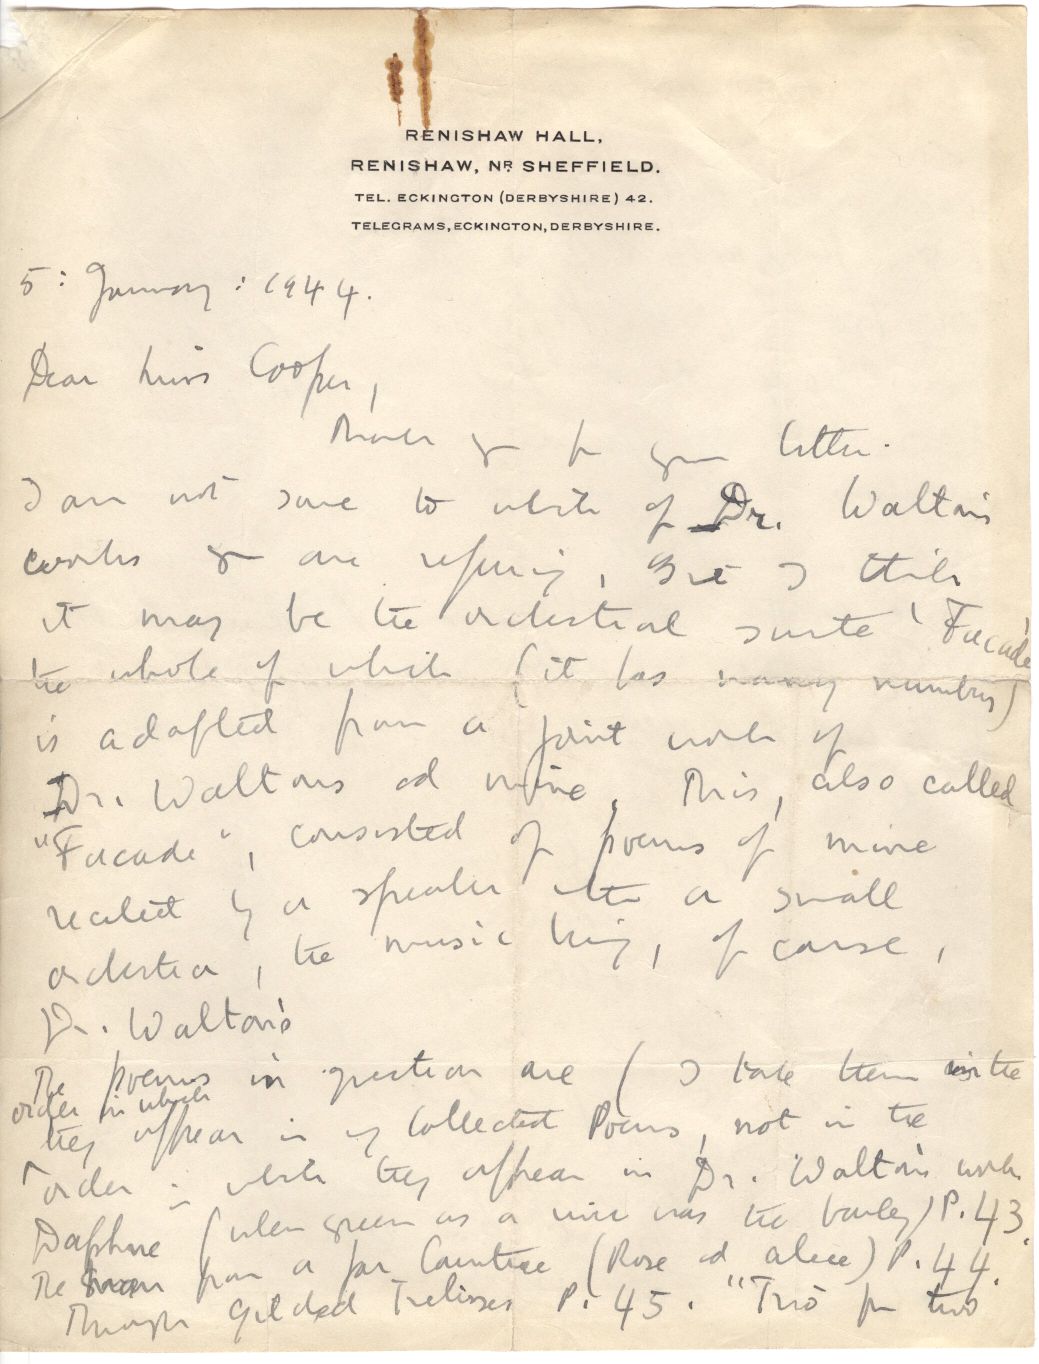 RENISHAW HALL,
RENISHAW, NR SHEFFIELD.
TEL. ECKINGTON (DERBYSHIRE) 42.
TELEGRAMS, ECKINGTON, DERBYSHIRE.
5: January: 1944.
Dear Miss Cooper,
Thank you for your letter.
I am not sure to which of Dr. Walton's
works you are refering, but I think
it may be the orchestral suite 'Facade'
the whole of which (it has many numbers)
is adapted from a joint work of
Dr. Waltons and mine. This, also called
"Facade", consisted of poems of mine
recited by a speaker with a small
orchestra, the music being, of course,
Dr. Walton's
The poems in question are (I take them in the
order in which
they appear in my Collected Poems, not in the
order in which they appear in Dr. Walton's work
Daphne (when green as a was the barley) P. 43.
The from a far Countree (Rose and alice) P. 44.
Through Gilded Trelisses P. 45. "Trio for two